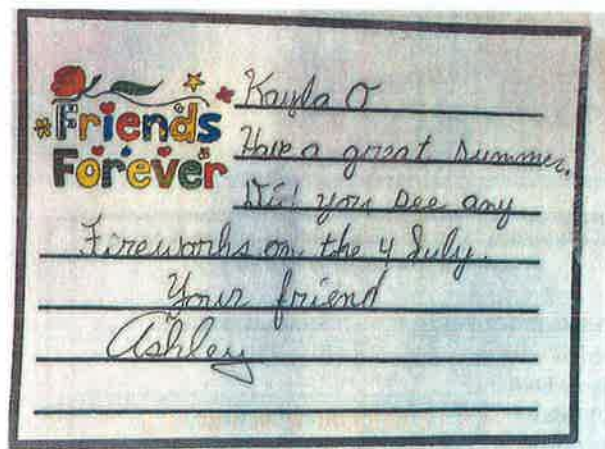 Friends
Forever
Kayla O
Have a great summer.
Did you see any
Fireworks on the 4 July.
Your friend
Ashley